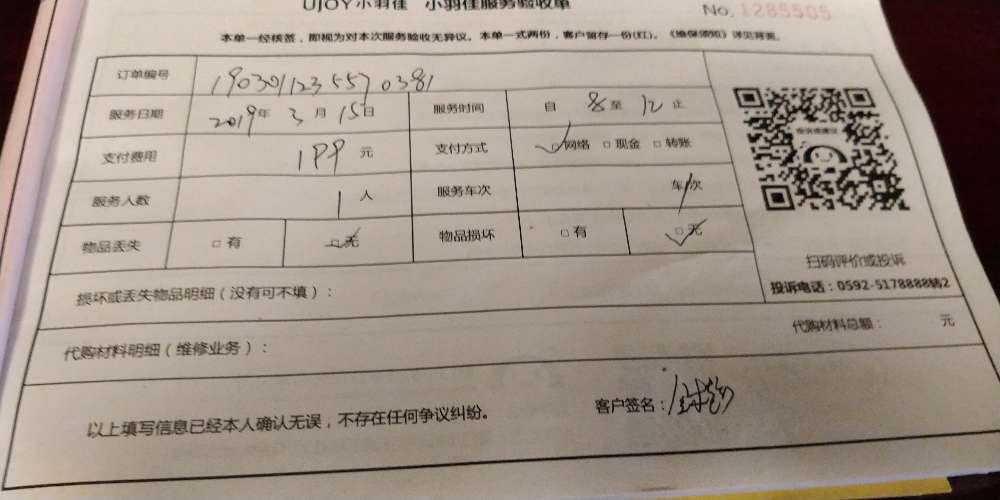 UJOY小羽佳 小羽佳服务验收单
No. 1285505
本单一经核签，即视为对本次服务验收无异议。本单一式两份，客户留存一份(红)。《维保须知》详见背面。
订单编号 1903011235570381
服务日期 2019年 3月 15日 服务时间 自 8 至 12 止
支付费用 199 元 支付方式 ☑网络 □现金 □转账
服务人数 1 人 服务车次 车 1 次
物品丢失 □有 ☑无 物品损坏 □有 ☑无
扫码评价或投诉
投诉电话：0592-5178888转2
损坏或丢失物品明细（没有可不填）：
代购材料明细（维修业务）： 代购材料总额： 元
以上填写信息已经本人确认无误，不存在任何争议纠纷。 客户签名：